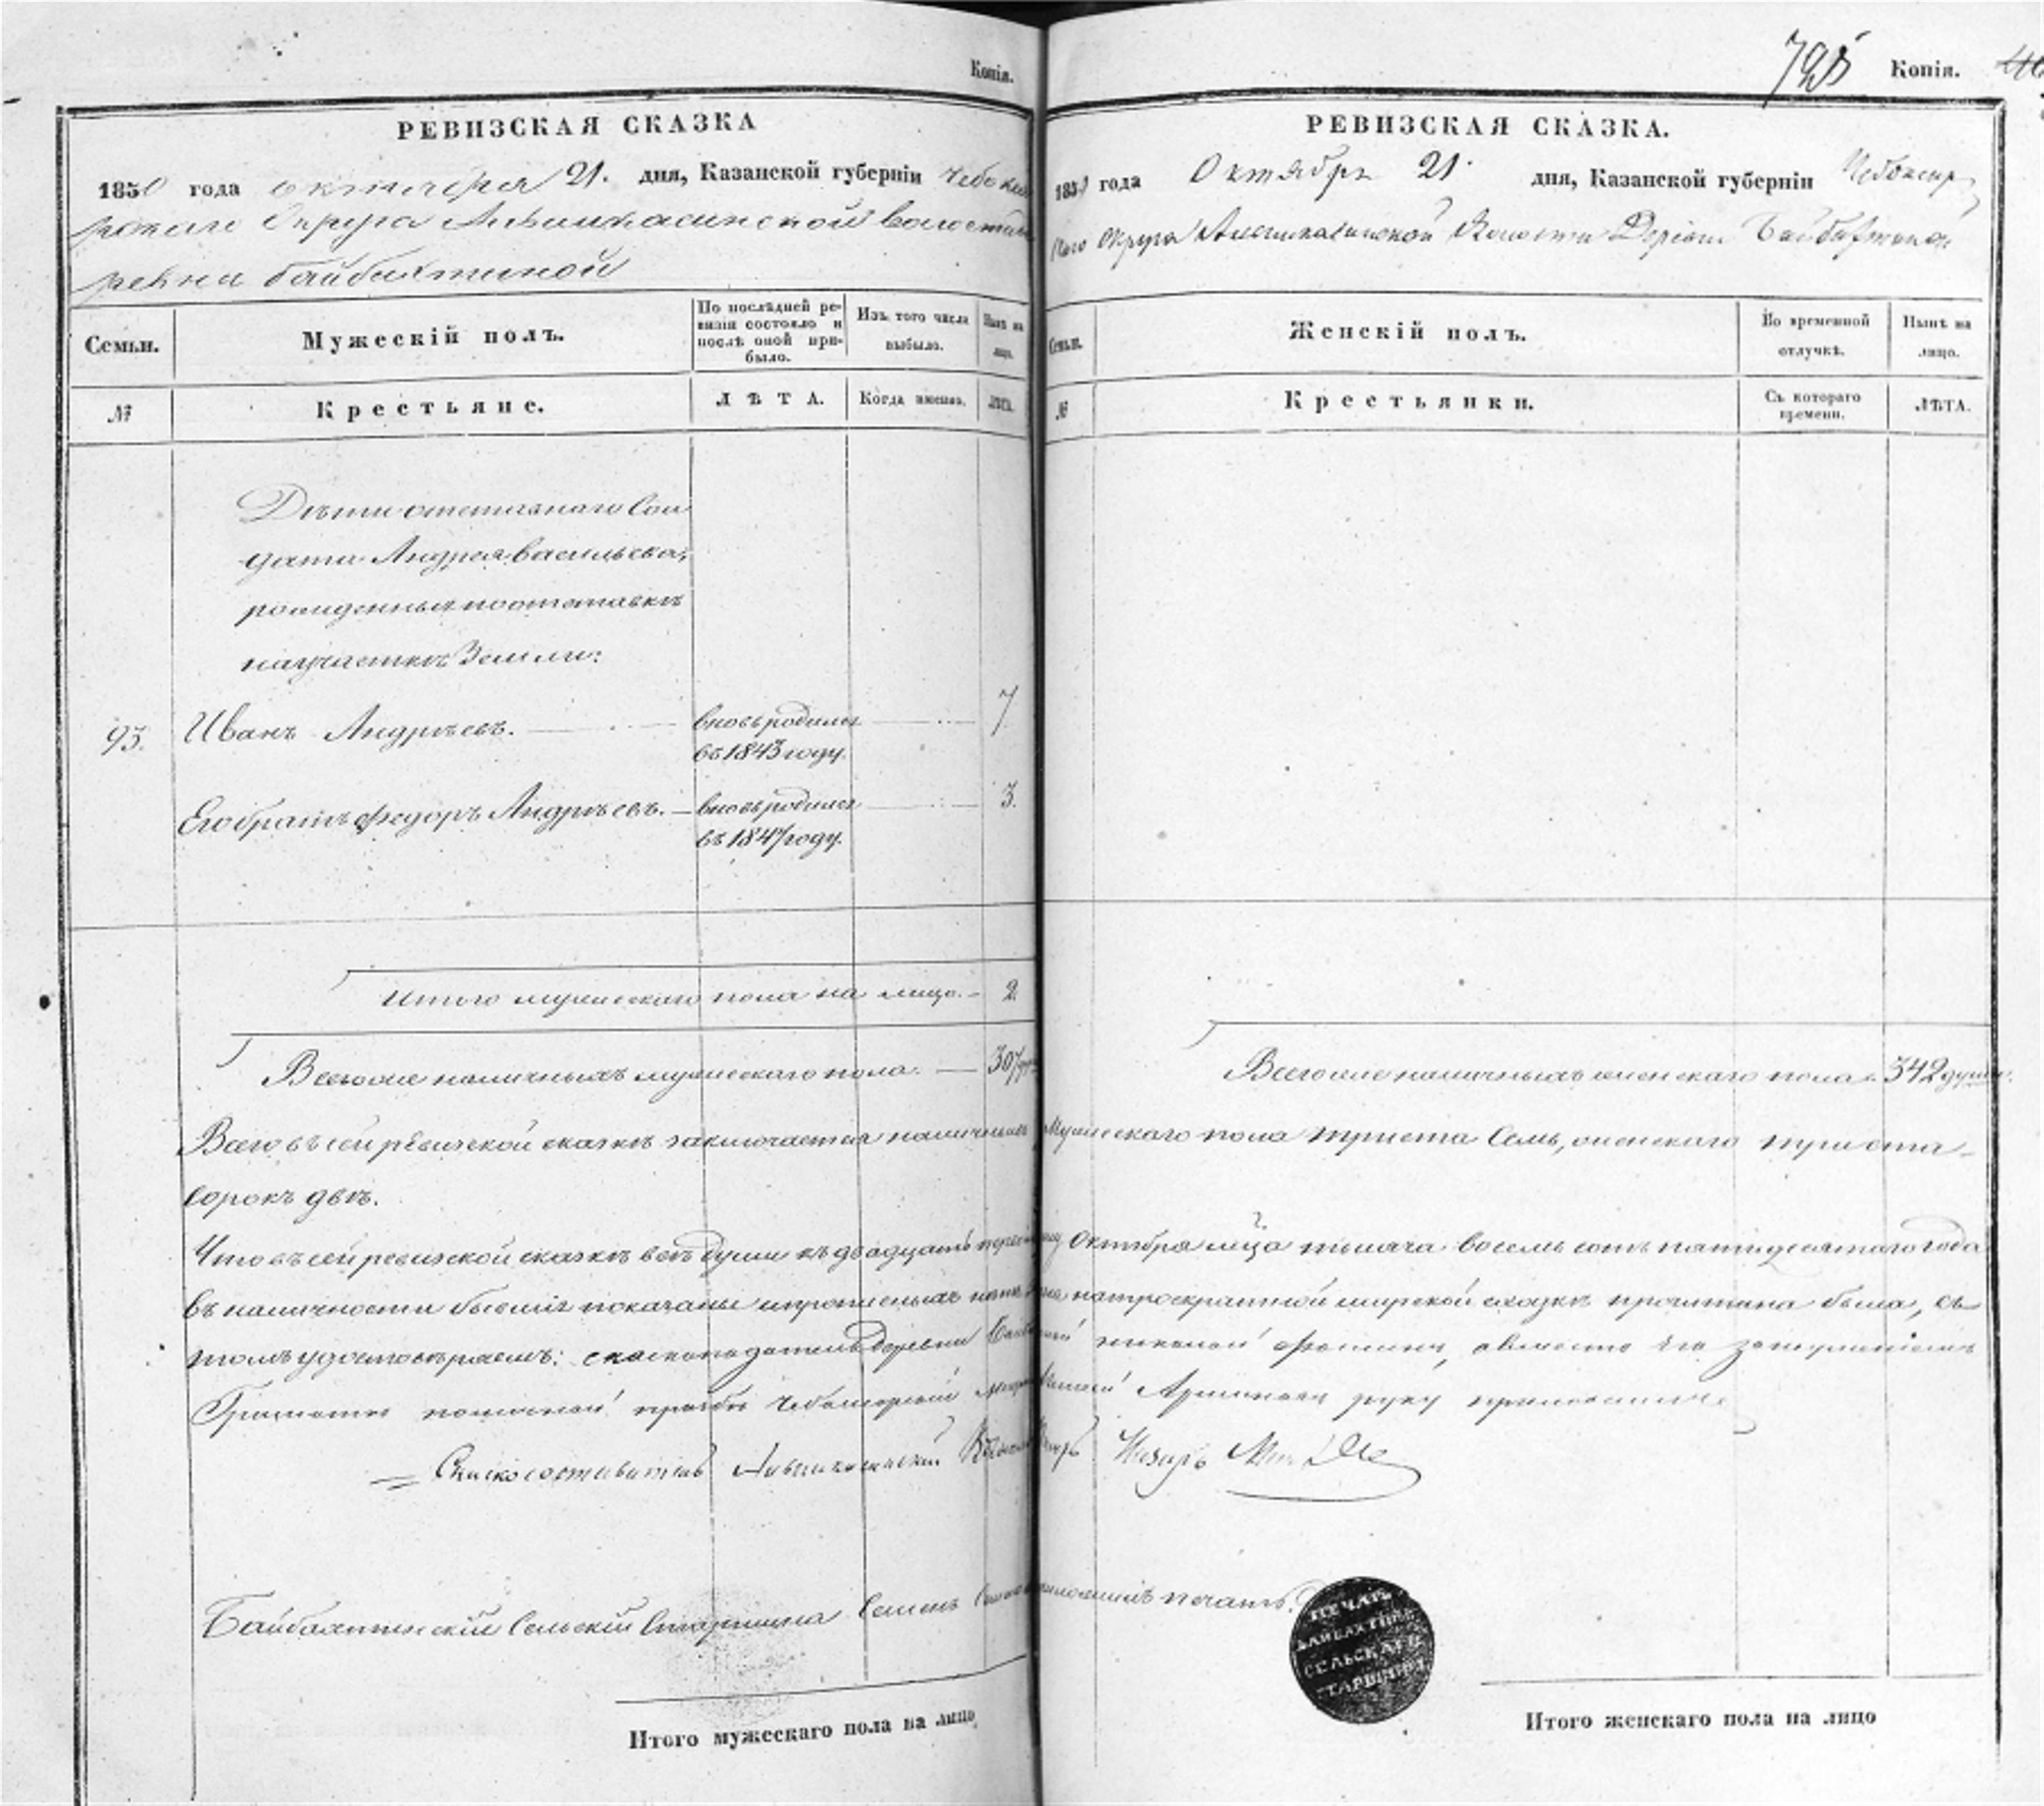 Копія.
РЕВИЗСКАЯ СКАЗКА
1850 года октября 21. дня, Казанской губерніи Чебокса
рскаго Округа волости
ревни Байбахтиной
Семьи.
Мужескій полъ.
По послѣдней ре-
визіи состояло и
послѣ оной при-
было.
Изъ того числа
выбыло.
Нынѣ на
лицо.
№
Крестьяне.
ЛѢТА.
Когда именно.
ЛѢТА.
Дѣти отставнаго Сол
дата Андрея Васильева,
рожденныя по отставкѣ
на участкѣ Земли:
93. Иванъ Андрѣевъ. вновь родился 7
въ 1843 году.
Его братъ Федоръ Андрѣевъ. вновь родился 3.
въ 1847 году.
Итого мужескаго пола на лицо. 2.
Всего же наличныхъ мужескаго пола. 307
725 Копія.
РЕВИЗСКАЯ СКАЗКА.
1850 года Октября 21. дня, Казанской губерніи Чебоксар
скаго Округа Волости Деревни Байбахтиной
Семьи.
Женскій полъ.
Во временной
отлучкѣ.
Нынѣ на
лицо.
№
Крестьянки.
Съ котораго
времени.
ЛѢТА.
Всего же наличныхъ женскаго пола 342 души.
Всего въ сей ревизской сказкѣ заключается наличныхъ Мужескаго пола триста Семь, женскаго триста
сорокъ двѣ.
Что въ сей ревизской сказкѣ всѣ души къ двадцать первому Октября мца тысяча восемь сотъ пятидесятаго года
въ наличности бывшія показаны и прописныхъ нѣтъ мирской сказкѣ прочитана была, въ
томъ удостовѣряемъ: сказкоподатель деревни Николай а вместо его
личной прозбѣ Чебоксарской руку приложилъ
Назаръ
Байбахтинскій Сельскій Старшина Семенъ приложилъ печать.
ПЕЧАТЬ
БАЙБАХТИНС
СЕЛЬСКАГО
СТАРШИНЫ
Итого мужескаго пола на лицо
Итого женскаго пола на лицо